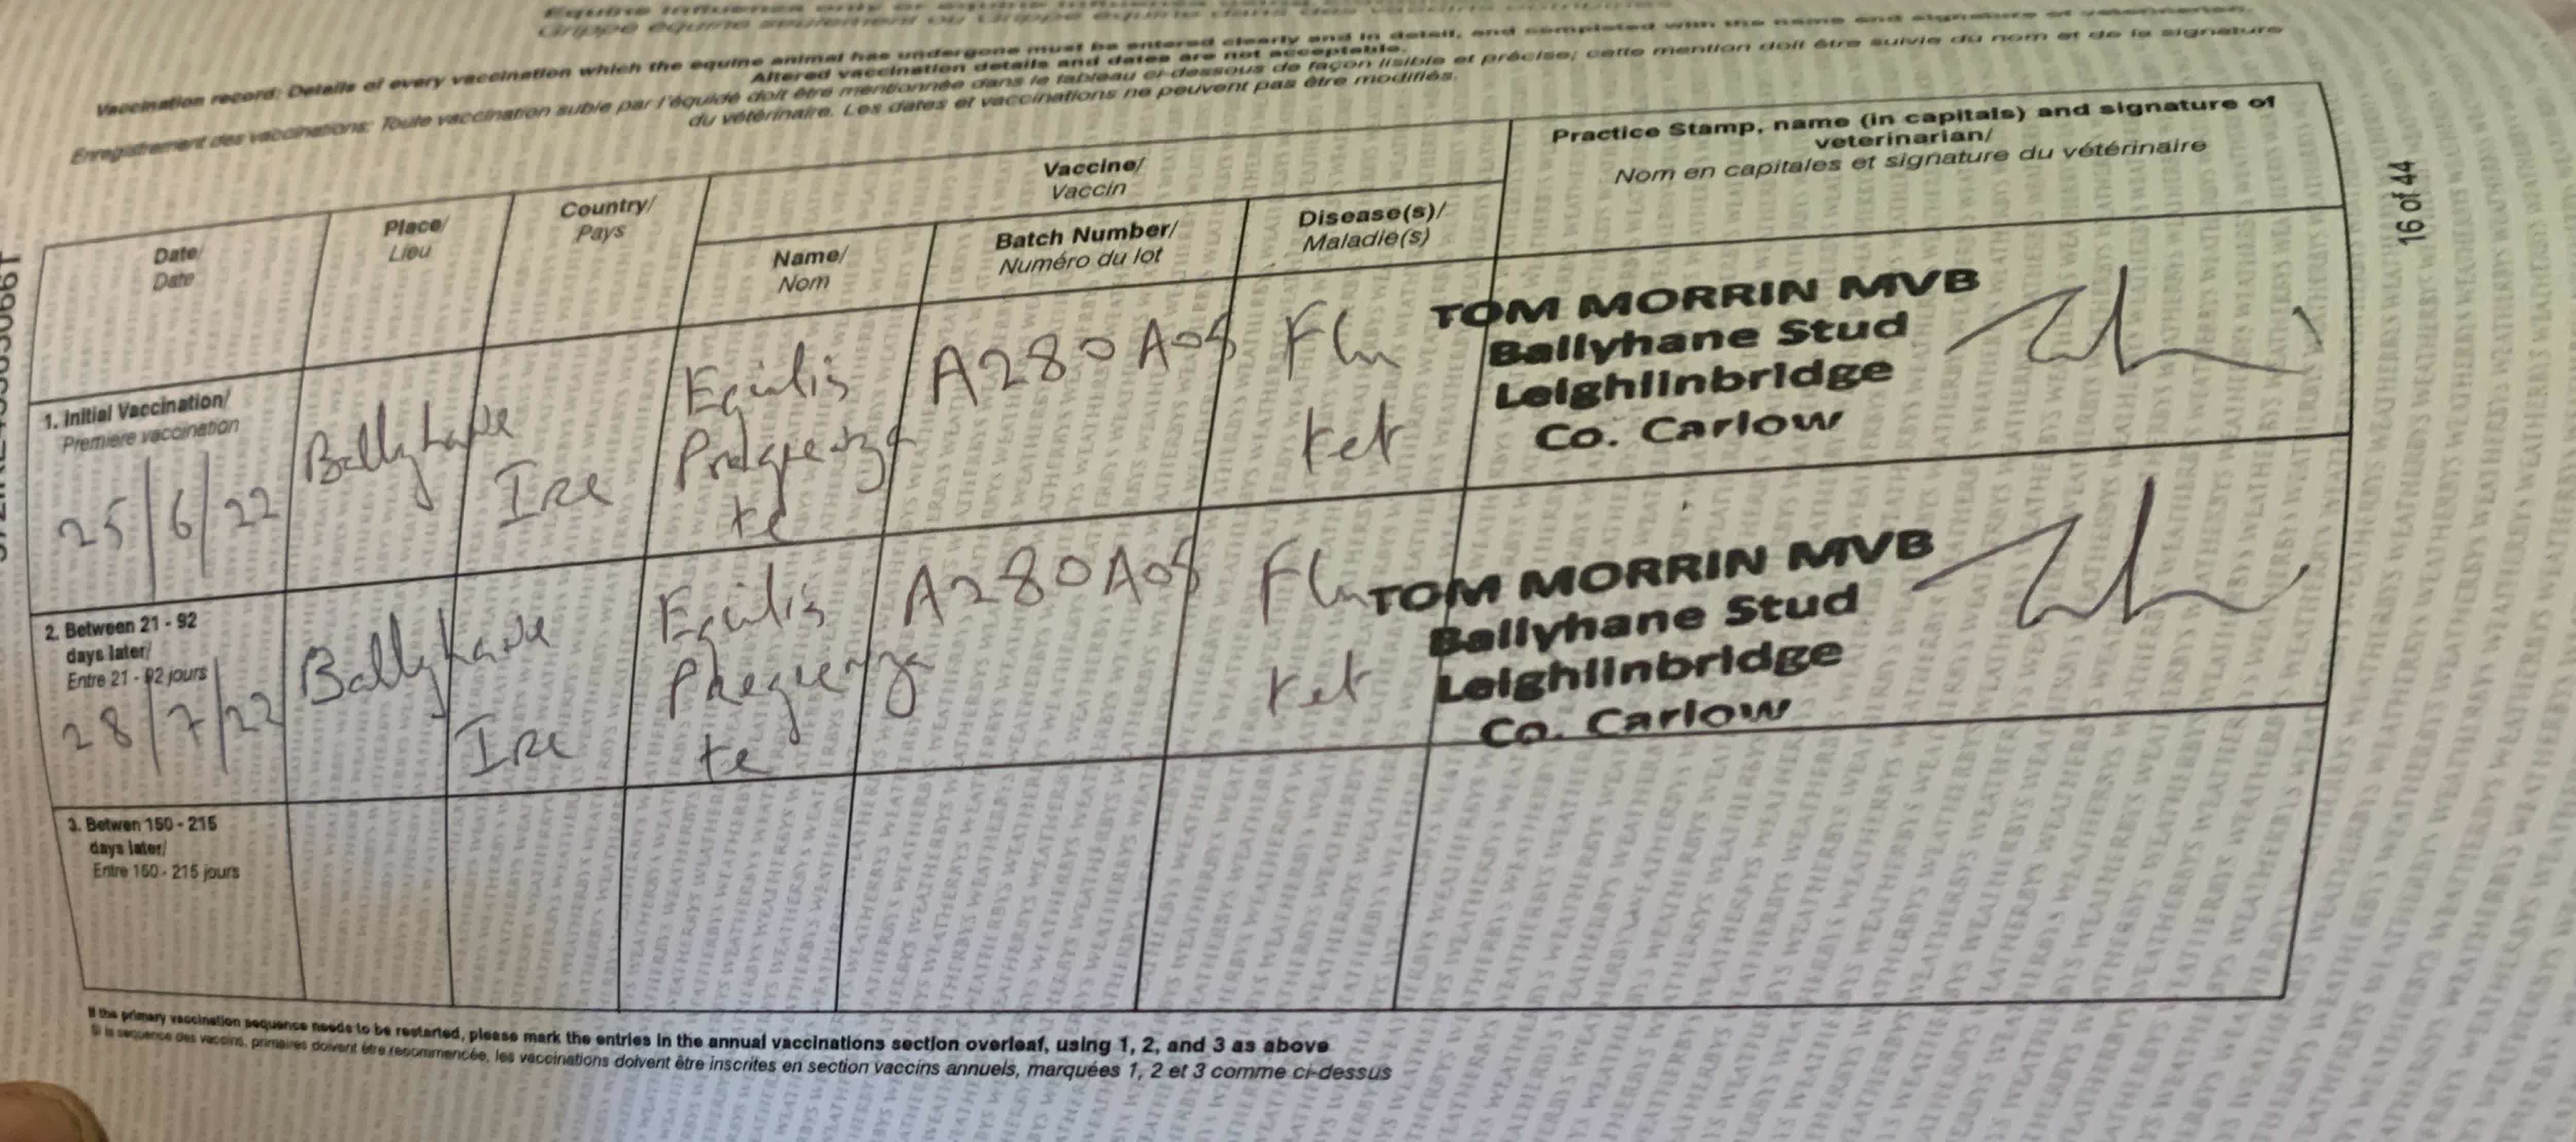 Equine influenza only or equine influenza
Grippe équine seulement ou Grippe équine dans des vaccins
Vaccination record: Details of every vaccination which the equine animal has undergone must be entered clearly and in detail, and completed with the name and signature of veterinarian.
Altered vaccination details and dates are not acceptable.
Enregistrement des vaccinations: Toute vaccination subie par l'équidé doit être mentionnée dans le tableau ci-dessous de façon lisible et précise; cette mention doit être suivie du nom et de la signature
du vétérinaire. Les dates et vaccinations ne peuvent pas être modifiés.
Date/
Date
Place/
Lieu
Country/
Pays
Vaccine/
Vaccin
Name/
Nom
Batch Number/
Numéro du lot
Disease(s)/
Maladie(s)
Practice Stamp, name (in capitals) and signature of
veterinarian/
Nom en capitales et signature du vétérinaire
1. Initial Vaccination/
Premiere vaccination
25/6/22
Ballyhane
Ire
Equilis
Prequenza
te
A280A05
Flu
tet
TOM MORRIN MVB
Ballyhane Stud
Leighlinbridge
Co. Carlow
2. Between 21 - 92
days later/
Entre 21 - 92 jours
28/7/22
Ballyhane
Ire
Equilis
Prequenza
te
A280A05
Flu
tet
TOM MORRIN MVB
Ballyhane Stud
Leighlinbridge
Co. Carlow
3. Betwen 150 - 215
days later/
Entre 150 - 215 jours
If the primary vaccination sequence needs to be restarted, please mark the entries in the annual vaccinations section overleaf, using 1, 2, and 3 as above
Si la sequence des vaccins, primaires doivent être recommencée, les vaccinations doivent être inscrites en section vaccins annuels, marquées 1, 2 et 3 comme ci-dessus
16 of 44